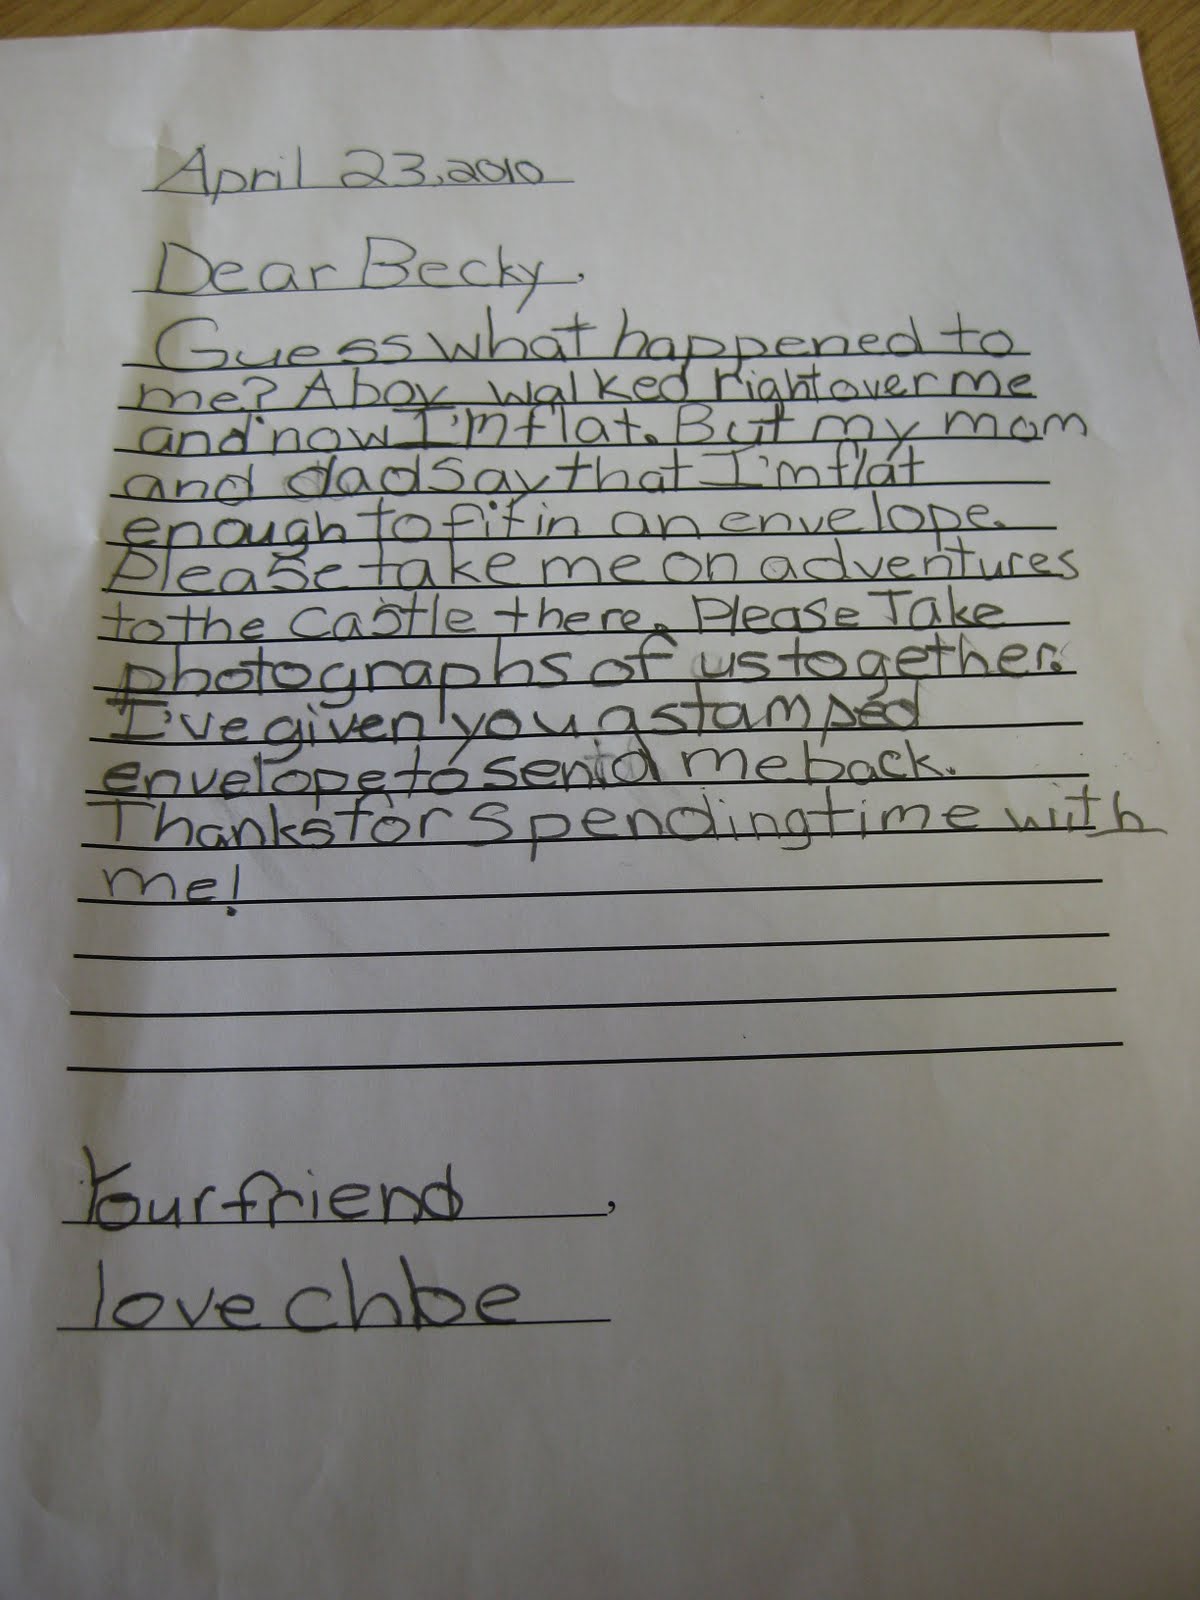 April 23, 2010
Dear Becky,
Guess what happened to
me? A boy walked right over me
and now I'm flat. But my mom
and dad say that I'm flat
enough to fit in an envelope.
Please take me on adventures
to the castle there. Please Take
photographs of us together.
I've given you a stamped
envelope to send me back.
Thanks for spending time with
me!
Your friend,
love chloe